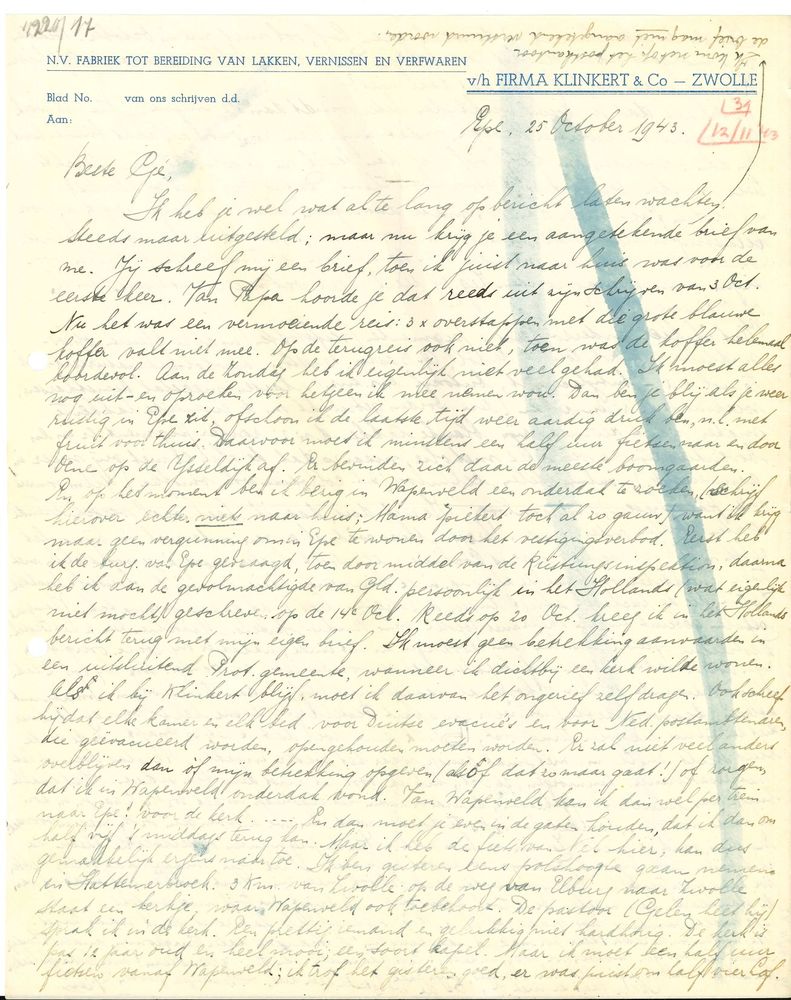 1220/17
Ik kom niet op het postkantoor
de brief mag niet aangetekend verstuurd worden.
N.V. FABRIEK TOT BEREIDING VAN LAKKEN, VERNISSEN EN VERFWAREN
v/h FIRMA KLINKERT & Co — ZWOLLE
Blad No. van ons schrijven d.d.
Aan:
31
12/11 '43
Epe, 25 October 1943.
Beste Cjé,
Ik heb je wel wat al te lang op bericht laten wachten.
Steeds maar uitgesteld; maar nu krijg je een aangetekende brief van
me. Jij schreef mij een brief, toen ik juist naar huis was voor de
eerste keer. Van Papa hoorde je dat reeds uit zijn schrijven van 3 Oct.
Nu het was een vermoeiende reis: 3 x overstappen met die grote blauwe
koffer valt niet mee. Op de terugreis ook niet, toen was de koffer helemaal
boordevol. Aan de Zondag heb ik eigenlijk niet veel gehad. Ik moest alles
nog uit- en opzoeken voor hetgeen ik mee nemen wou. Dan ben je blij als je weer
rustig in Epe zit, ofschoon ik de laatste tijd weer aardig druk ben, n.l. met
fruit voor thuis. Daarvoor moet ik minstens een half uur fietsen naar en door
Vene op de IJsseldijk af. Er bevinden zich daar de meeste boomgaarden.
En op het moment ben ik bezig in Wapenveld een onderdak te zoeken, (schrijf
hierover echter niets naar huis; Mama piekert toch al zo gauw) want ik krijg
maar geen vergunning om in Epe te wonen door het vestigingsverbod. Eerst heb
ik de burg. van Epe gevraagd, toen door middel van de Rüstungsinspektion, daarna
heb ik aan de gevolmachtigde van Gld. persoonlijk in het Hollands (wat eigenlijk
niet mocht) geschreven op de 14e Oct. Reeds op 20 Oct. kreeg ik in het Hollands
bericht terug met mijn eigen brief. Ik moest geen betrekking aanvaarden in
een uitsluitend Prot. gemeente, wanneer ik dichtbij een kerk wilde wonen.
Als ik bij Klinkert blijf, moet ik daarvan het ongerief zelf dragen. Ook schreef
hij dat elke kamer en elk bed voor Duitse evacué's en voor Ned. postambtenaren,
die geëvacueerd worden, opengehouden moeten worden. Er zal niet veel anders
overblijven dan óf mijn betrekking opgeven (alsof dat zo maar gaat!) of zorgen,
dat ik in Wapenveld onderdak vond. Van Wapenveld kan ik dan wel per trein
naar Epe! voor de kerk ..... En dan moet je even in de gaten houden, dat ik dan om
half vijf 's middags terug kan. Maar ik heb de fiets van hier; kan dus
gemakkelijk ergens naar toe. Ik ben gisteren eens polshoogte gaan nemen
in Hattemerbroek: 3 Km. van Zwolle op de weg van Elburg naar Zwolle
staat een kerkje, waar Wapenveld ook toebehoort. De pastoor (Gelen heet hij)
sprak ik in de kerk. Een prettig iemand en gelukkig niet hardhorig. De kerk is
pas 12 jaar oud en heel mooi; een soort kapel. Maar ik moet een half uur
fietsen vanaf Wapenveld; ik trof het gisteren goed, er was juist om half vier Lof.